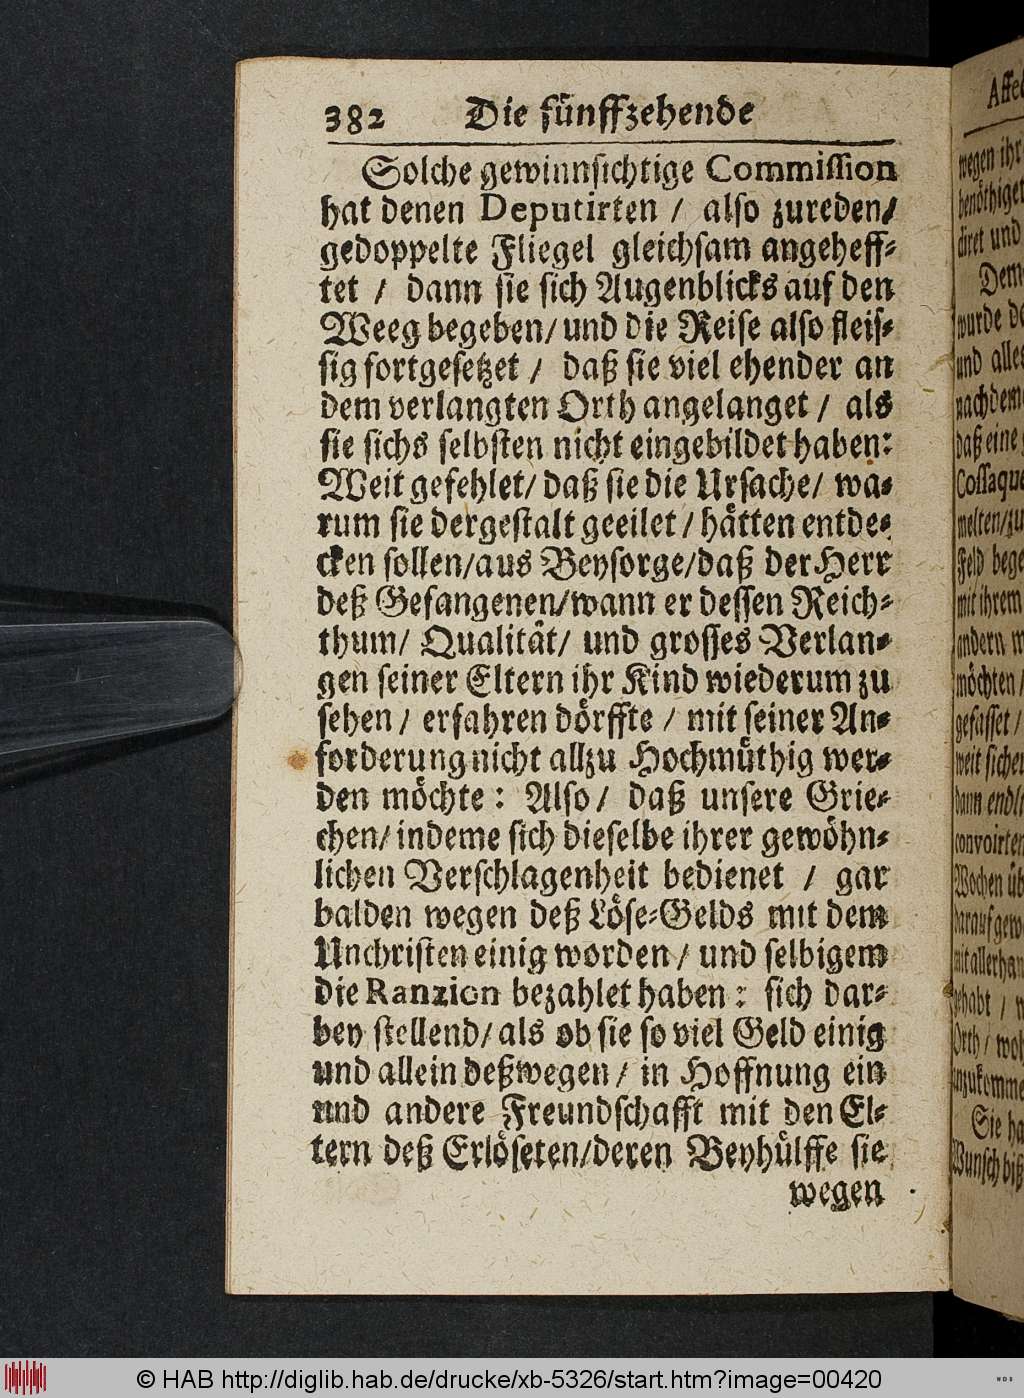 382 Die fünffzehende
Solche gewinnsichtige Commission
hat denen Deputirten / also zureden/
gedoppelte Fliegel gleichsam angeheff-
tet / dann sie sich Augenblicks auf den
Weeg begeben/ und die Reise also fleis-
sig fortgesetzet / daß sie viel ehender an
dem verlangten Orth angelanget / als
sie sichs selbsten nicht eingebildet haben:
Weit gefehlet/ daß sie die Ursache/ wa-
rum sie dergestalt geeilet / hätten entde-
cken sollen/aus Beysorge/daß der Herr
deß Gefangenen/wann er dessen Reich-
thum/ Qualität/ und grosses Verlan-
gen seiner Eltern ihr Kind wiederum zu
sehen / erfahren dörffte / mit seiner An-
forderung nicht allzu Hochmüthig wer-
den möchte: Also/ daß unsere Grie-
chen/ indeme sich dieselbe ihrer gewöhn-
lichen Verschlagenheit bedienet / gar
balden wegen deß Löse-Gelds mit dem
Unchristen einig worden / und selbigem
die Ranzion bezahlet haben: sich dar-
bey stellend/ als ob sie so viel Geld einig
und allein deßwegen / in Hoffnung ein
und andere Freundschafft mit den El-
tern deß Erlöseten/deren Beyhülffe sie
wegen
wegen ihr
und
Dem
wurde
und
nachdem
daß eine
Cossaque
melten/zu
Feld bege
mit ihrem
andern
möchten /
gefasset /
weit sicher
dann endl
convoirten
Wochen üb
darauf gew
mit allerhan
gehabt /
Orth / wo
anzukomme
Sie ha
Wunsch biß
© HAB http://diglib.hab.de/drucke/xb-5326/start.htm?image=00420